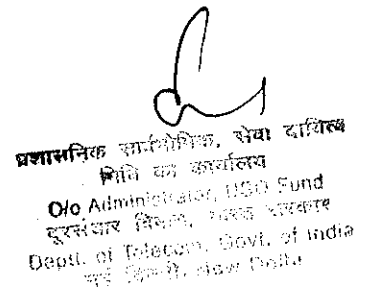 प्रशासनिक सार्वभौमिक, सेवा दायित्व
निधि का कार्यालय
O/o Administrator, USO Fund
दूरसंचार विभाग, भारत सरकार
Deptt. of Telecom, Govt. of India
नई दिल्ली, New Delhi